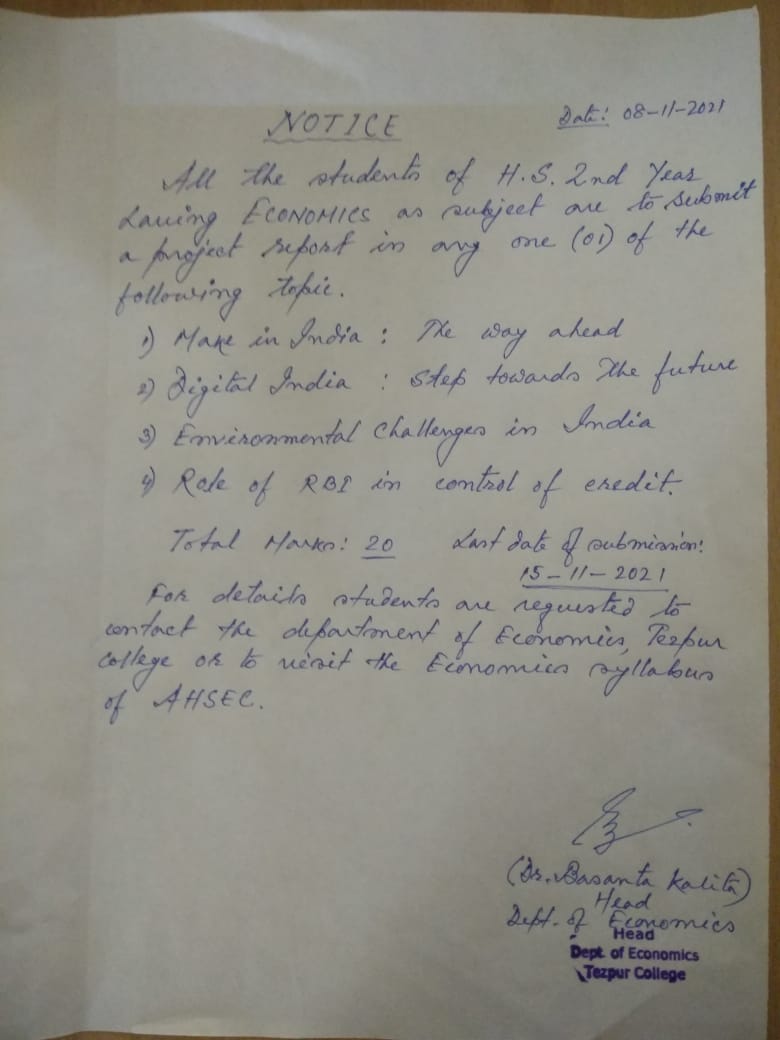 NOTICE
Date: 08-11-2021
All the students of H.S. 2nd Year
having ECONOMICS as subject are to submit
a project report in any one (01) of the
following topic.
1) Make in India : The way ahead
2) Digital India : Step towards the future
3) Environmental Challenges in India
4) Role of RBI in control of credit.
Total Marks: 20 Last date of submission:
15-11-2021
For details students are requested to
contact the department of Economics, Tezpur
College or to visit the Economics syllabus
of AHSEC.
(Dr. Basanta Kalita)
Head
Dept. of Economics
Head
Dept. of Economics
Tezpur College